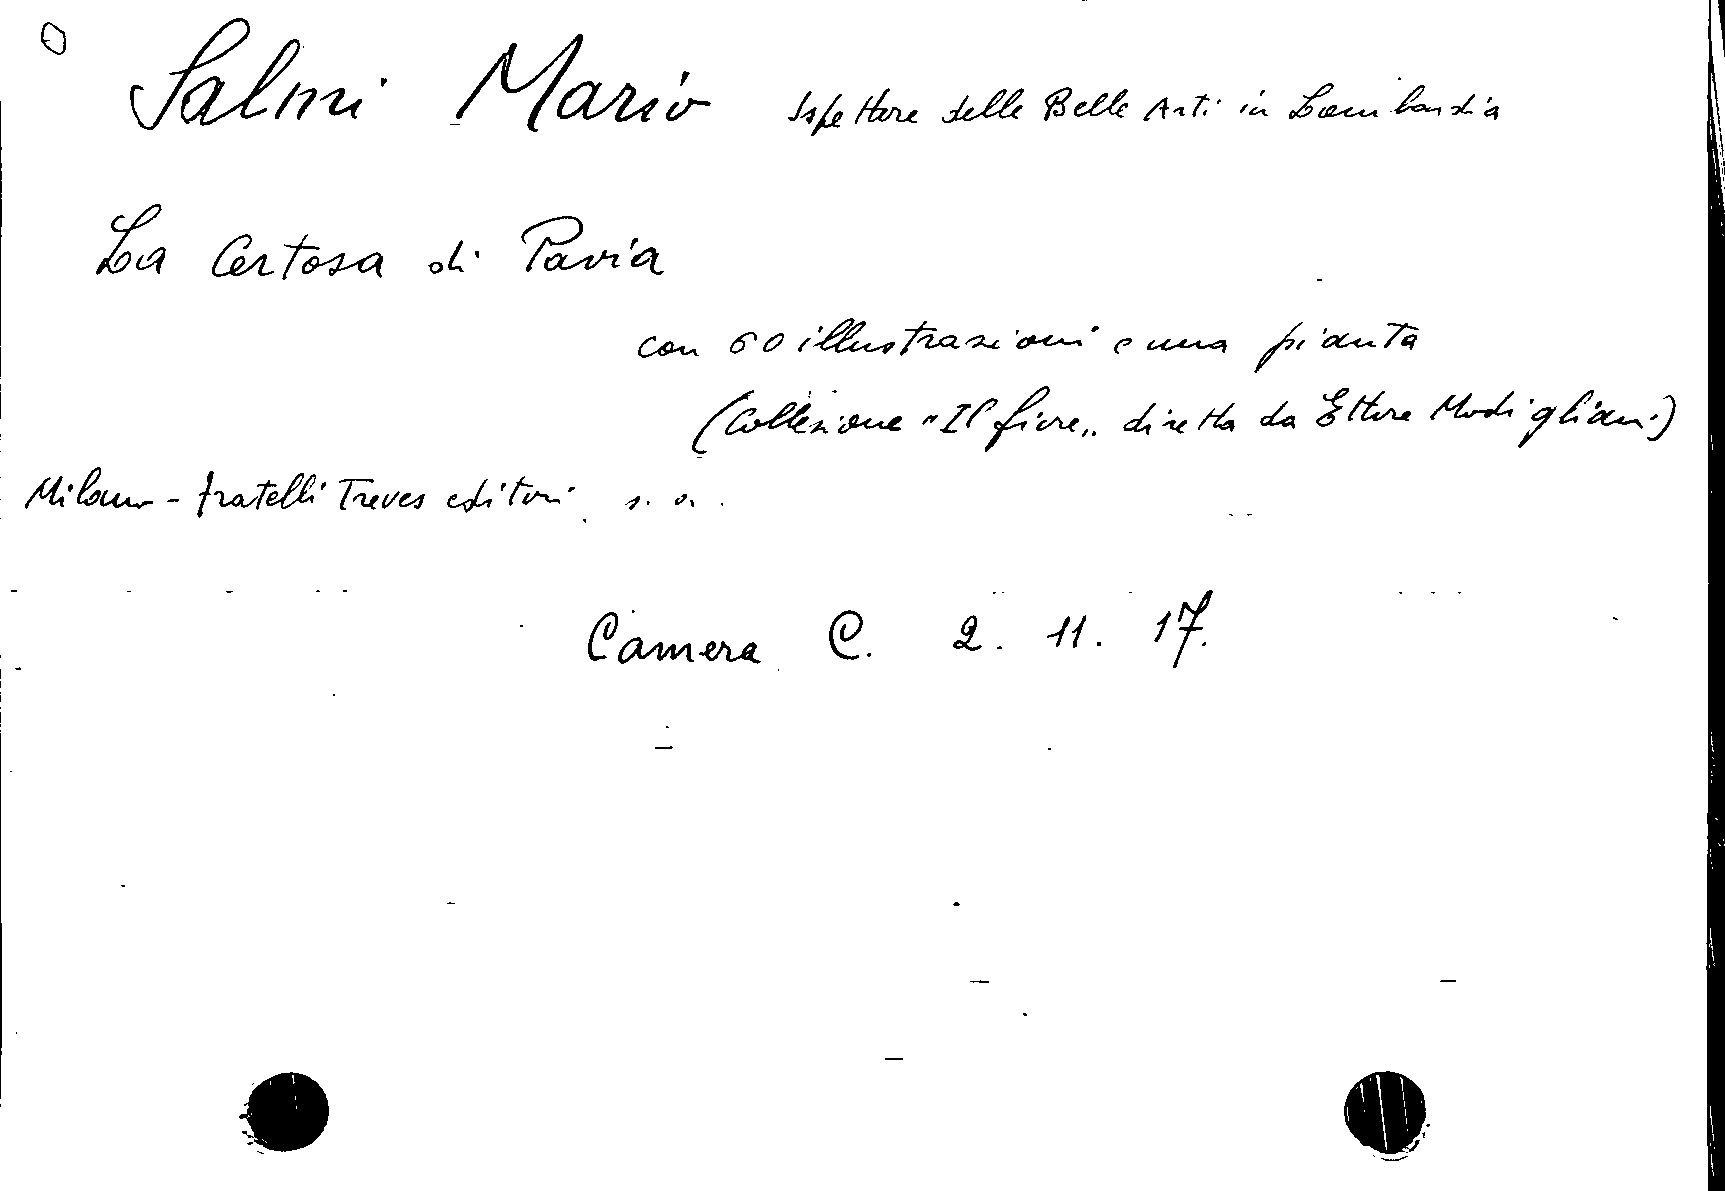 Salmi Mario Ispettore delle Belle Arti in Lombardia
La Certosa di Pavia
con 60 illustrazioni e una pianta
(Collezione "Il fiore„ diretta da Ettore Modigliani)
Milano - fratelli Treves editori s. a.
Camera C. 2. 11. 17.